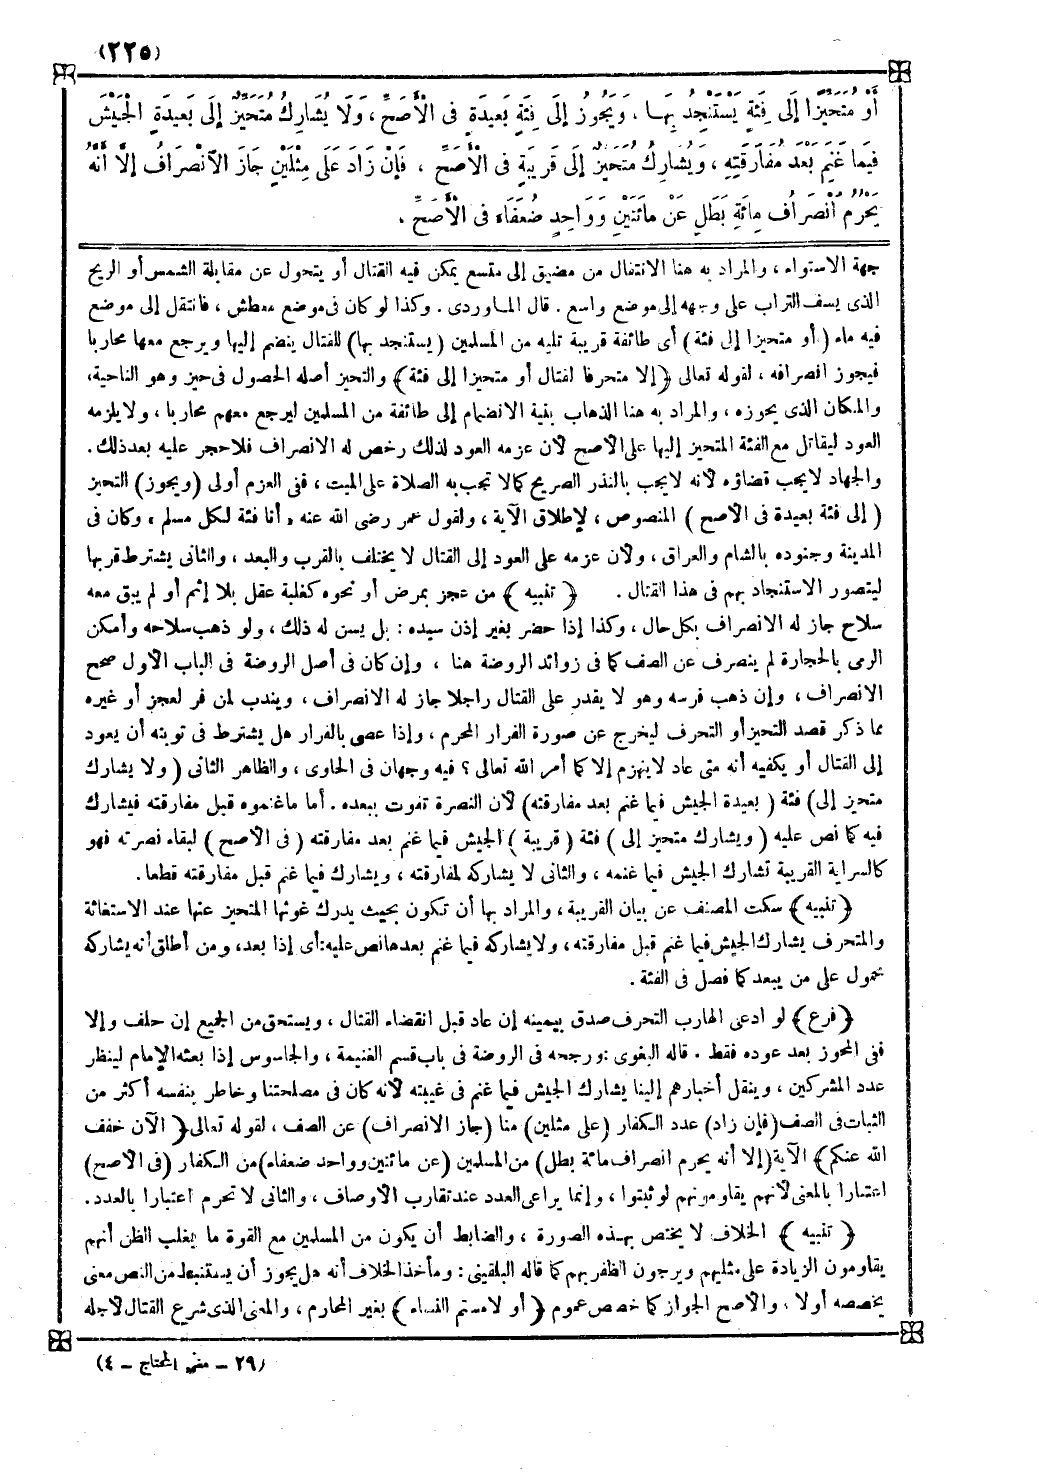 (٢٢٥)
أَوْ مُتَحَيِّزًا إِلَى فِئَةٍ يَسْتَنْجِدُ بِهَا ، وَيَجُوزُ إِلَى فِئَةٍ بَعِيدَةٍ فِى الْأَصَحِّ ، وَلَا يُشَارِكُ مُتَحَيِّزٌ إِلَى بَعِيدَةٍ الْجَيْشَ
فِيمَا غَنِمَ بَعْدَ مُفَارَقَتِهِ ، وَيُشَارِكُ مُتَحَيِّزٌ إِلَى قَرِيبَةٍ فِى الْأَصَحِّ ، فَإِنْ زَادَ عَلَى مِثْلَيْنِ جَازَ الِانْصِرَافُ إِلَّا أَنَّهُ
يَحْرُمُ انْصِرَافُ مِائَةِ بَطَلٍ عَنْ مِائَتَيْنِ وَوَاحِدٍ ضُعَفَاءَ فِى الْأَصَحِّ .
جهة الاستواء ، والمراد به هنا الانتقال من مضيق إلى متسع يمكن فيه القتال أو يتحول عن مقابلة الشمس أو الريح
الذى يسف التراب على وجهه إلى موضع واسع . قال الماوردى . وكذا لو كان فى موضع معطش ، فانتقل إلى موضع
فيه ماء (أو متحيزا إلى فئة) أى طائفة قريبة تليه من المسلمين (يستنجد بها) للقتال ينضم إليها ويرجع معها محاربا
فيجوز انصرافه ، لقوله تعالى ﴿إلا متحرفا لقتال أو متحيزا إلى فئة﴾ والتحيز أصله الحصول فى حيز وهو الناحية،
والمكان الذى يحوزه ، والمراد به هنا الذهاب بنية الانضمام إلى طائفة من المسلمين ليرجع معهم محاربا ، ولا يلزمه
العود ليقاتل مع الفئة المتحيز إليها على الأصح لأن عزمه العود لذلك رخص له الانصراف فلا حجر عليه بعد ذلك .
والجهاد لا يجب قضاؤه لأنه لا يجب بالنذر الصريح كما لا تجب به الصلاة على الميت ، ففى العزم أولى (ويجوز) التحيز
(إلى فئة بعيدة فى الأصح) المنصوص ، لإطلاق الآية ، ولقول عمر رضى الله عنه « أنا فئة لكل مسلم » وكان فى
المدينة وجنوده بالشام والعراق ، ولأن عزمه على العود إلى القتال لا يختلف بالقرب والبعد ، والثانى يشترط قربها
ليتصور الاستنجاد بهم فى هذا القتال . ﴿ تنبيه ﴾ من عجز بمرض أو نحوه كغلبة عقل بلا إثم أو لم يبق معه
سلاح جاز له الانصراف بكل حال ، وكذا إذا حضر بغير إذن سيده : بل يسن له ذلك ، ولو ذهب سلاحه وأمكن
الرمى بالحجارة لم ينصرف عن الصف كما فى زوائد الروضة هنا ، وإن كان فى أصل الروضة فى الباب الأول صحح
الانصراف ، وإن ذهب فرسه وهو لا يقدر على القتال راجلا جاز له الانصراف ، ويندب لمن فر لعجز أو غيره
مما ذكر قصد التحيز أو التحرف ليخرج عن صورة الفرار المحرم ، وإذا عصى بالفرار هل يشترط فى توبته أن يعود
إلى القتال أو يكفيه أنه متى عاد لا ينهزم إلا كما أمر الله تعالى ؟ فيه وجهان فى الحاوى ، والظاهر الثانى (ولا يشارك
متحيز إلى) فئة (بعيدة الجيش فيما غنم بعد مفارقته) لأن النصرة تفوت ببعده . أما ما غنموه قبل مفارقته فيشارك
فيه كما نص عليه (ويشارك متحيز إلى) فئة (قريبة) الجيش فيما غنم بعد مفارقته (فى الأصح) لبقاء نصرته فهو
كالسراية القريبة تشارك الجيش فيما غنمه ، والثانى لا يشاركه لمفارقته ، ويشارك فيما غنم قبل مفارقته قطعا .
﴿تنبيه﴾ سكت المصنف عن بيان القريبة ، والمراد بها أن تكون بحيث يدرك غوثها المتحيز عنها عند الاستغاثة
والمتحرف يشارك الجيش فيما غنم قبل مفارقته ، ولا يشاركه فيما غنم بعدها نص عليه: أى إذا بعد، ومن أطلق أنه يشاركه
محمول على من يبعد كما فصل فى الفئة .
﴿فرع﴾ لو ادعى الهارب التحرف صدق بيمينه إن عاد قبل انقضاء القتال ، ويستحق من الجميع إن حلف وإلا
ففى المحوز بعد عوده فقط . قاله البغوى : ورجحه فى الروضة فى باب قسم الغنيمة ، والجاسوس إذا بعثه الإمام لينظر
عدد المشركين ، وينقل أخبارهم إلينا يشارك الجيش فيما غنم فى غيبته لأنه كان فى مصلحتنا وخاطر بنفسه أكثر من
الثبات فى الصف (فإن زاد) عدد الكفار (على مثلين) منا (جاز الانصراف) عن الصف ، لقوله تعالى ﴿الآن خفف
الله عنكم﴾ الآية (إلا أنه يحرم انصراف مائة بطل) من المسلمين (عن مائتين وواحد ضعفاء) من الكفار (فى الأصح)
اعتبارا بالمعنى لأنهم يقاومونهم لو ثبتوا ، وإنما يراعى العدد عند تقارب الأوصاف ، والثانى لا تحرم اعتبارا بالعدد .
﴿ تنبيه ﴾ الخلاف لا يختص بهذه الصورة ، والضابط أن يكون من المسلمين مع القوة ما يغلب الظن أنهم
يقاومون الزيادة على مثليهم ويرجون الظفر بهم كما قاله البلقينى : ومأخذ الخلاف أنه هل يجوز أن يستنبط من النص معنى
يخصصه أولا ، والأصح الجواز كما خصص عموم ﴿أو لامستم النساء﴾ بغير المحارم ، والمعنى الذى شرع القتال لأجله
(٢٩ - مغنى المحتاج - ٤)